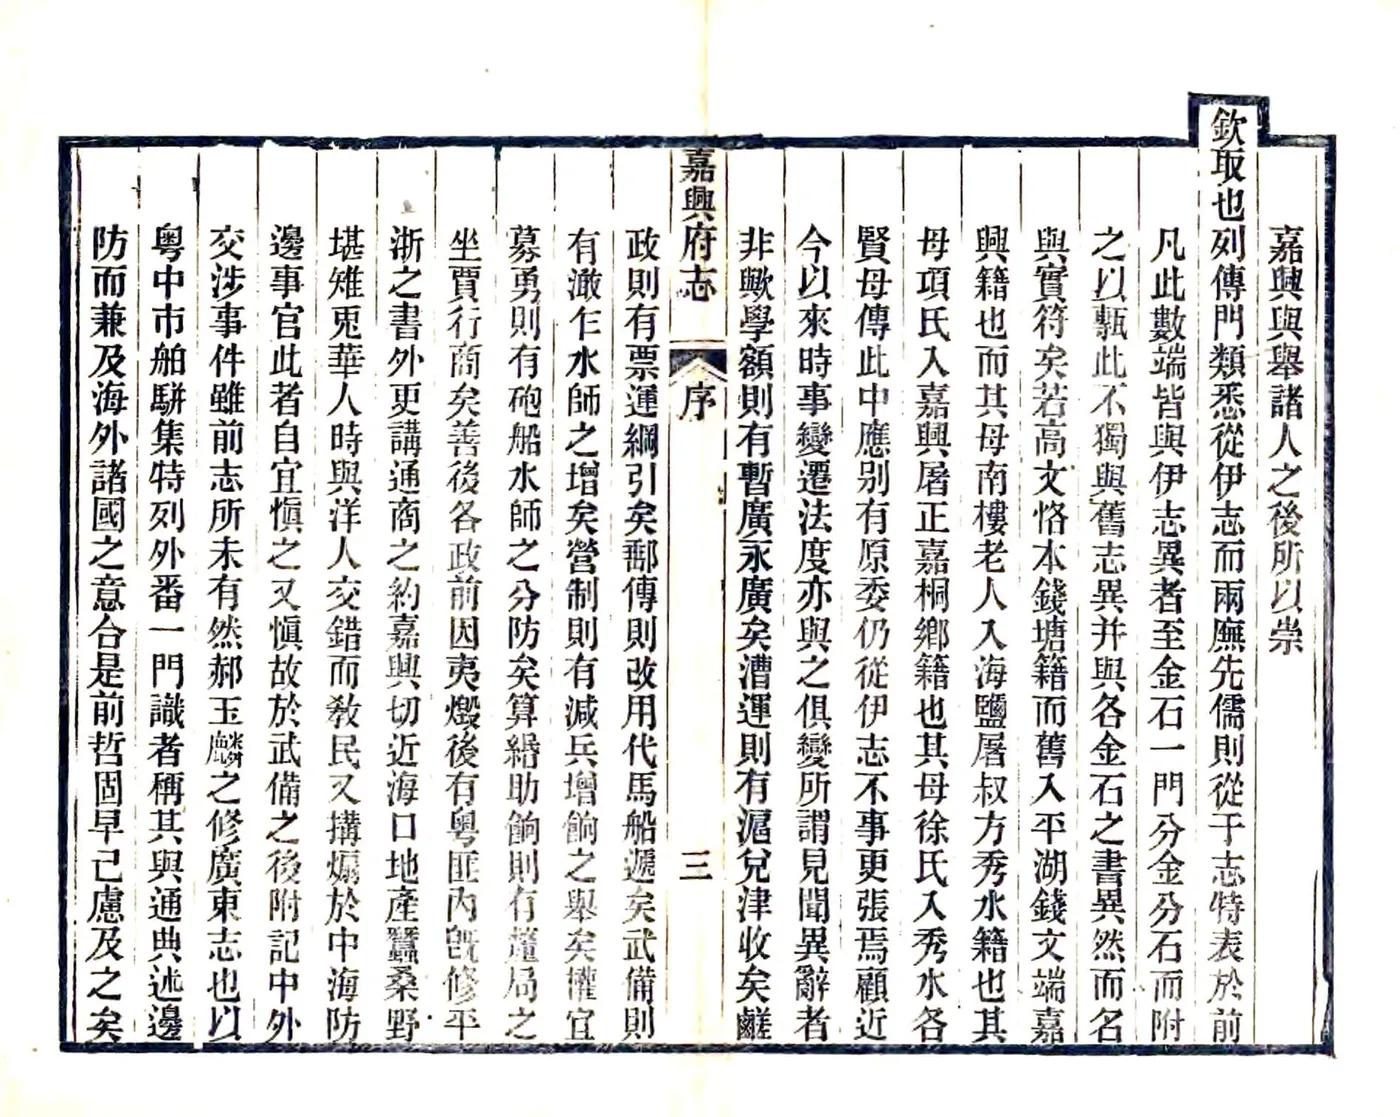 嘉興與舉諸人之後所以崇
欽取也列傳門類悉從伊志而兩廡先儒則從于志特表於前
凡此數端皆與伊志異者至金石一門分金分石而附
之以甎此不獨與舊志異并與各金石之書異然而名
與實符矣若高文恪本錢塘籍而舊入平湖錢文端嘉
興籍也而其母南樓老人入海鹽屠叔方秀水籍也其
母項氏入嘉興屠正嘉桐鄉籍也其母徐氏入秀水各
賢母傳此中應別有原委仍從伊志不事更張焉顧近
今以來時事變遷法度亦與之俱變所謂見聞異辭者
非歟學額則有暫廣永廣矣漕運則有滬兌津收矣鹺
嘉興府志
序
三
政則有票運綱引矣郵傳則改用代馬船遞矣武備則
有澉乍水師之增矣營制則有減兵增餉之舉矣權宜
募勇則有砲船水師之分防矣算緡助餉則有釐局之
坐賈行商矣善後各政前因夷燬後有粵匪內既修平
浙之書外更講通商之約嘉興切近海口地產蠶桑野
堪雉兎華人時與洋人交錯而敎民又搆煽於中海防
邊事官此者自宜愼之又愼故於武備之後附記中外
交涉事件雖前志所未有然郝玉麟之修廣東志也以
粵中市舶駢集特列外番一門識者稱其與通典述邊
防而兼及海外諸國之意合是前哲固早已慮及之矣